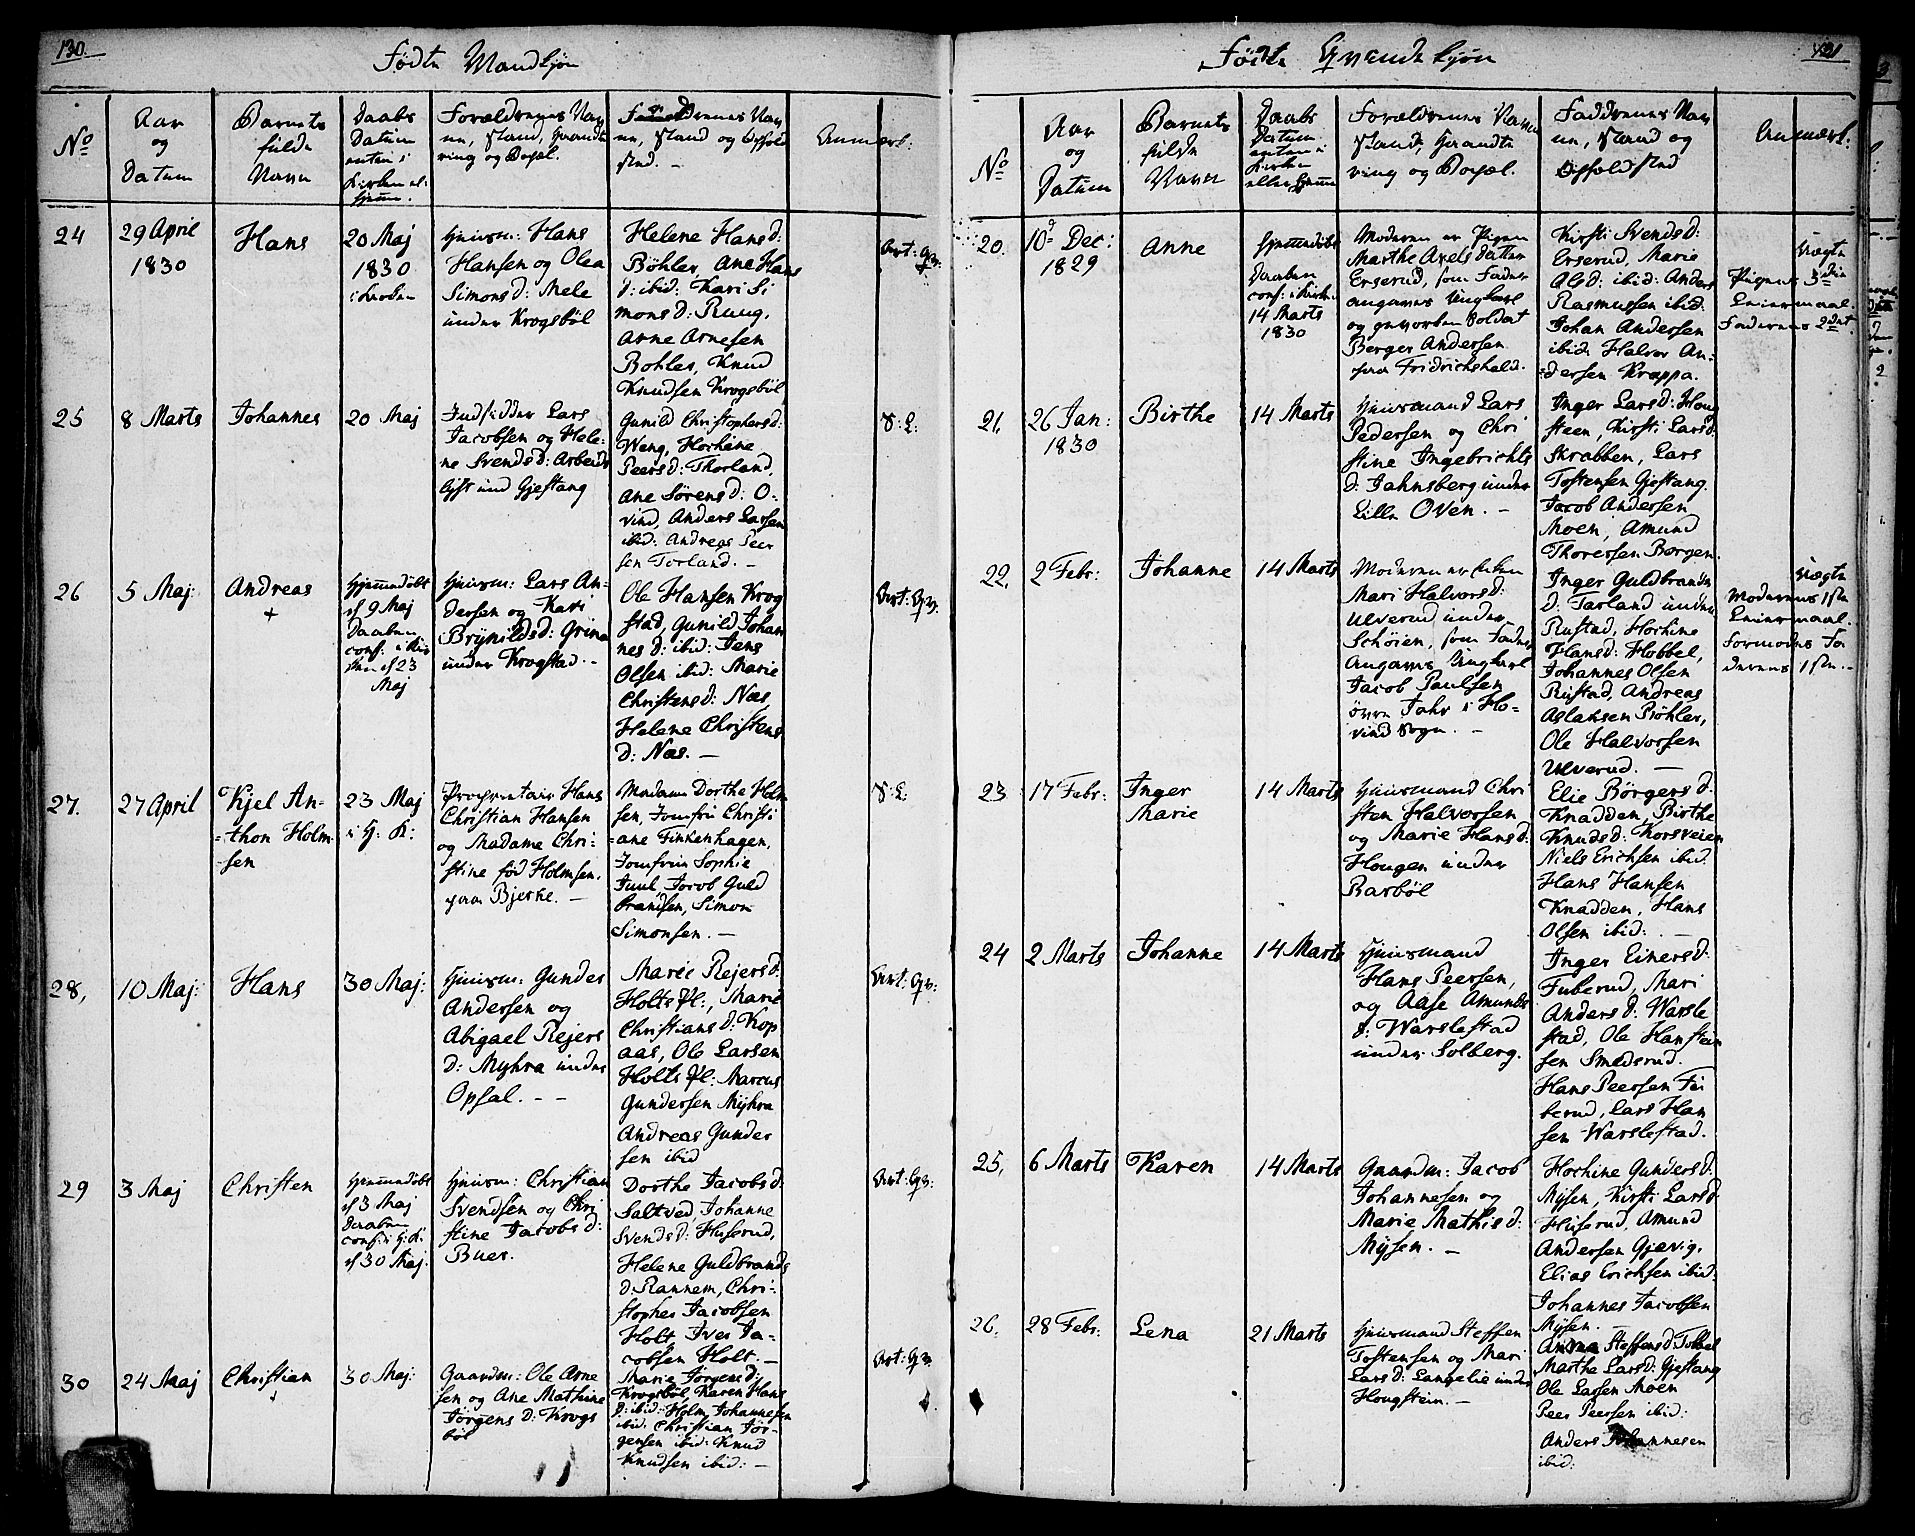 130.
Fødte Mandkjøn
No
Aar
og
Datum
Barnets
fulde
Navn
Daabs
Datum
enten i
Kirken el:
hjemme.
Forældrenes Nav
ne, Stand, Haandte
ring og Bopæl.
Faddrenes Nav
ne, Stand og Ophold
sted. -
Anmærk:
24
29 April
1830
Hans
20 Maj
1830
i Kroken
Huusm: Hans
Hansen og Olea
Simonsd: Mele
under Krogsbøl
Helene Hansd:
Bøhler, Ane Hans
d: ibid: Kari Si
monsd: Rung,
Arne Arnesen
Bohler, Knud
Knudsen Krogsbøl
25
8 Marts
Johannes
20 Maj
Indsidder Lars
Jacobsen og Hele-
ne Svendsd: Arbeids
Gjestang
Gunild Christophersd:
Wang, Hochine
Peersd: Thorland,
Ane Sørensd: O-
vind, Anders Larsen
ibid: Andreas Peer
sen Torland. -
26
5 Maj:
Andreas
+
Hjemmedøbt
d 9 Maj
Daaben
conf. i Kir
ken d 23
Maj
Huusm: Lars An-
dersen og Kari
Brynildsd: Grina
under Krogstad. -
Ole Hansen Krog
stad, Gunild Johan
nesd: ibid: Jens
Olsen ibid: Marie
Christensd: Næs,
Helene Christens
d: Næs. -
27.
27 April
Kjel An-
thon Holm-
sen
23 Maj
i H: K:
Procurator Hans
Christian Hansen
og Madame Chri-
stine fød Holmsen,
paa Bjerke. -
Madame Dorthe Holm
sen, Jomfru Christi
ane Finkenhagen,
Jomfru Sophie
Juul Jacob Guld
brandsen, Simon
Simonsen. -
28,
10 Maj:
Hans
30 Maj:
Huusm: Gunder
Andersen og
Abigael Rejers
d: Myhra under
Opsal. - -
Marie Rejersd:
Holts Pl:, Marie
Christiansd: Kop
aas, Ole Larsen
Holts Pl: Marcus
Gundersen Myhra
Andreas Gunder
sen ibid
29
3 Maj
Christen
Hjemmedøbt
d 3 Maj
Daaben
conf: i H: K:
d 30 Maj:
Huusm: Christian
Svendsen og Chri
stine Jacobsd:
Buer.
Dorthe Jacobsd:
Saltved, Johanne
Svendsd: Huserud,
Helene Guldbrands
d: Rannem, Chri-
stopher Jacobsen
Holt Iver Ja-
cobsen Holt. -
30
24 Maj
Christian
+
30 Maj:
Gaardm: Ole Arne
sen og Ane Mathine
Jørgensd: Krogs
bøl
Marie Jørgensd:
Krogsbøl, Karen Hans
d: ibid: Holm Johannesen
ibid. Christian Jør-
gensen ibid: Knud
Knudsen ibid: -
131
Fødte Qvindekjøn
No
Aar
og
Datum
Barnets
fulde
Navn
Daabs
Datum
enten i
Kirken
eller hjemme
Forældrenes Navne
Stand, Haandte
ring og Bopæl.
Faddrenes Nav
ne, Stand og
Opholdsted
Anmærk:
20.
10d Dec:
1829
Anne
Hjemmedøbt
Daaben
conf: i Kirken
14 Marts
1830
Moderen er Pigen
Marthe Axels datter
Erserud, som Fader
angaves Ungkarl
og geworben Soldat
Berger Andersen
paa Fridrichshald.
Kirsti Svendsd:
Erserud, Marie
Alsd: ibid: Anders
Rasmussen ibid:
Johan Andersen
ibid: Halvor An-
dersen Krappa.
Uægte
Pigens 3die
Leiermaal.
Faderens 2det.
21.
26 Jan:
1830
Birthe
14 Marts
Huusmand Lars
Pedersen og Chri
stine Ingebrichts
d: Jahnsberg under
Lille Oven. -
Inger Larsd: Houg
steen, Kirsti Larsd:
Skrabben, Lars
Tostensen Gjestang.
Jacob Andersen
Moen, Amund
Thoressen Borgen.
22.
2 Febr:
Johanne
14 Marts
Moderen er Enken
Mari Halvorsd:
Ulverud under
Schøien, som Fader
Angaves Ungkarl
Jacob Paulsen
øvre Jahr i Ho-
vind Sogn. -
Inger Guldbrands
d: Tarland under
Rustad, Hochine
Hansd: Hobbel,
Johannes Olsen
Rustad, Andreas
Aslaksen Bøhler,
Ole Halvorsen
Ulverud. -
Uægte
Moderens 1ste
Leiermaal.
formodes Fa
derens 1ste. -
23
17 Febr:
Inger
Marie
14 Marts
Huusmand Chri
sten Halvorsen
og Marie Hansd:
Hougen under
Barbøl
Elie Børgersd:
Knadden, Birthe
Knudsd: Korsveien
Niels Erichsen ibid.
Hans Hansen
Knadden, Hans
Olsen ibid: -
24
2 Marts
Johanne
14 Marts
Huusmand
Hans Peersen,
og Aase Amunds
d: Warslestad
under Solberg.
Inger Einersd:
Fuberud, Mari
Andersd: Warsle
stad, Ole Hanstein
sen Smedsrud.
Hans Peersen Fu
berud, Lars Han
sen Warslestad.
25.
6 Marts
Karen
14 Marts
Gaardm: Jacob
Johannesen og
Marie Mathisd:
Mysen. -
Hochine Gundersd:
Mysen, Kirsti Larsd:
Huserud, Amund
Andersen Gjævig,
Elias Erichsen ibid:
Johannes Jacobsen
Mysen. -
26.
28 Febr:
Lena
21 Marts
Huusmand Steffen
Tostensen og Mari
Larsd: Langelie under
Hougstein. -
Anna Steffensd: Tobbel
Marthe Larsd: Gjestang
Ole Larsen Moen
Peer Peersen ibid:
Anders Johannesen
ibid: